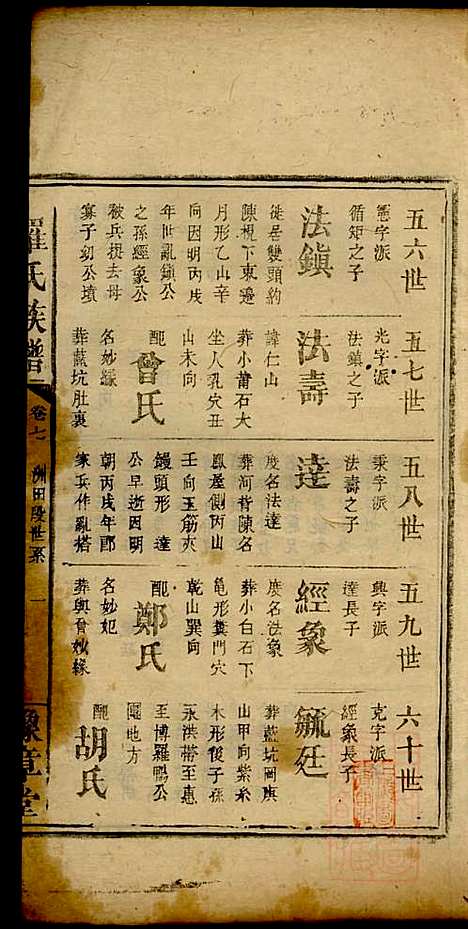 五六世
憲字派
循矩之子
法鎮
徙居雙頭約
陳梘下東邊
月形乙山辛
向因明丙戌
年世亂鎮公
之孫經象公
被兵擄去母
寡子幼公墳
五七世
光字派
法鎮之子
法壽
諱仁山
葬小莆石大
坐人孔穴丑
山未向
配曾氏
名妙緣
葬藍坑肚裏
五八世
秉字派
法壽之子
達
度名法達
葬河背陳名
鳳屋側丙山
壬向玉筯夾
饅頭形 達
公早逝因明
朝丙戌年鄙
家兵作亂搭
五九世
興字派
達長子
經象
度名法象
葬小白石下
龟形糞門穴
乾山巽向
配鄭氏
名妙妃
葬與曾妙緣
六十世
克字派
經象長子
毓廷
葬藍坑岡庚
山甲向紫糸
木形後子孫
永洪帯至惠
至博羅鴨公
𡉏地方
配胡氏
羅氏族譜
卷七
洲田段世系
一
豫章堂